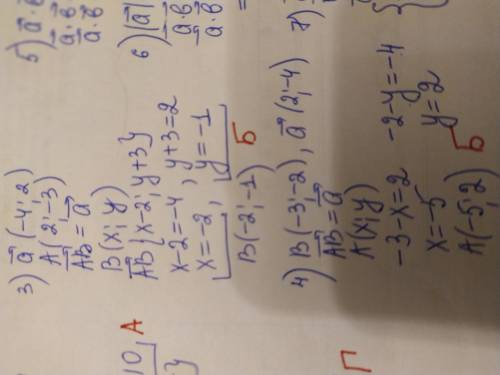 3) a⃗ (-4; 2)
A(2; -3)
A⃗B⃗ = a⃗
B(x; y)
A⃗B⃗ {x-2; y+3}
x-2=-4, y+3=2
x=-2, y=-1
B(-2; -1) Б
4) B(-3; -2), a⃗ (2; -4)
A⃗B⃗ = a⃗
A(x; y)
-3-x=2 -2-y=-4
x=-5 y=2
A(-5; 2) Б
5) a⃗·в⃗
a⃗·в⃗
a⃗·в⃗
6) |a⃗|
a⃗·в⃗
a⃗·в⃗
7)
10
А
Г